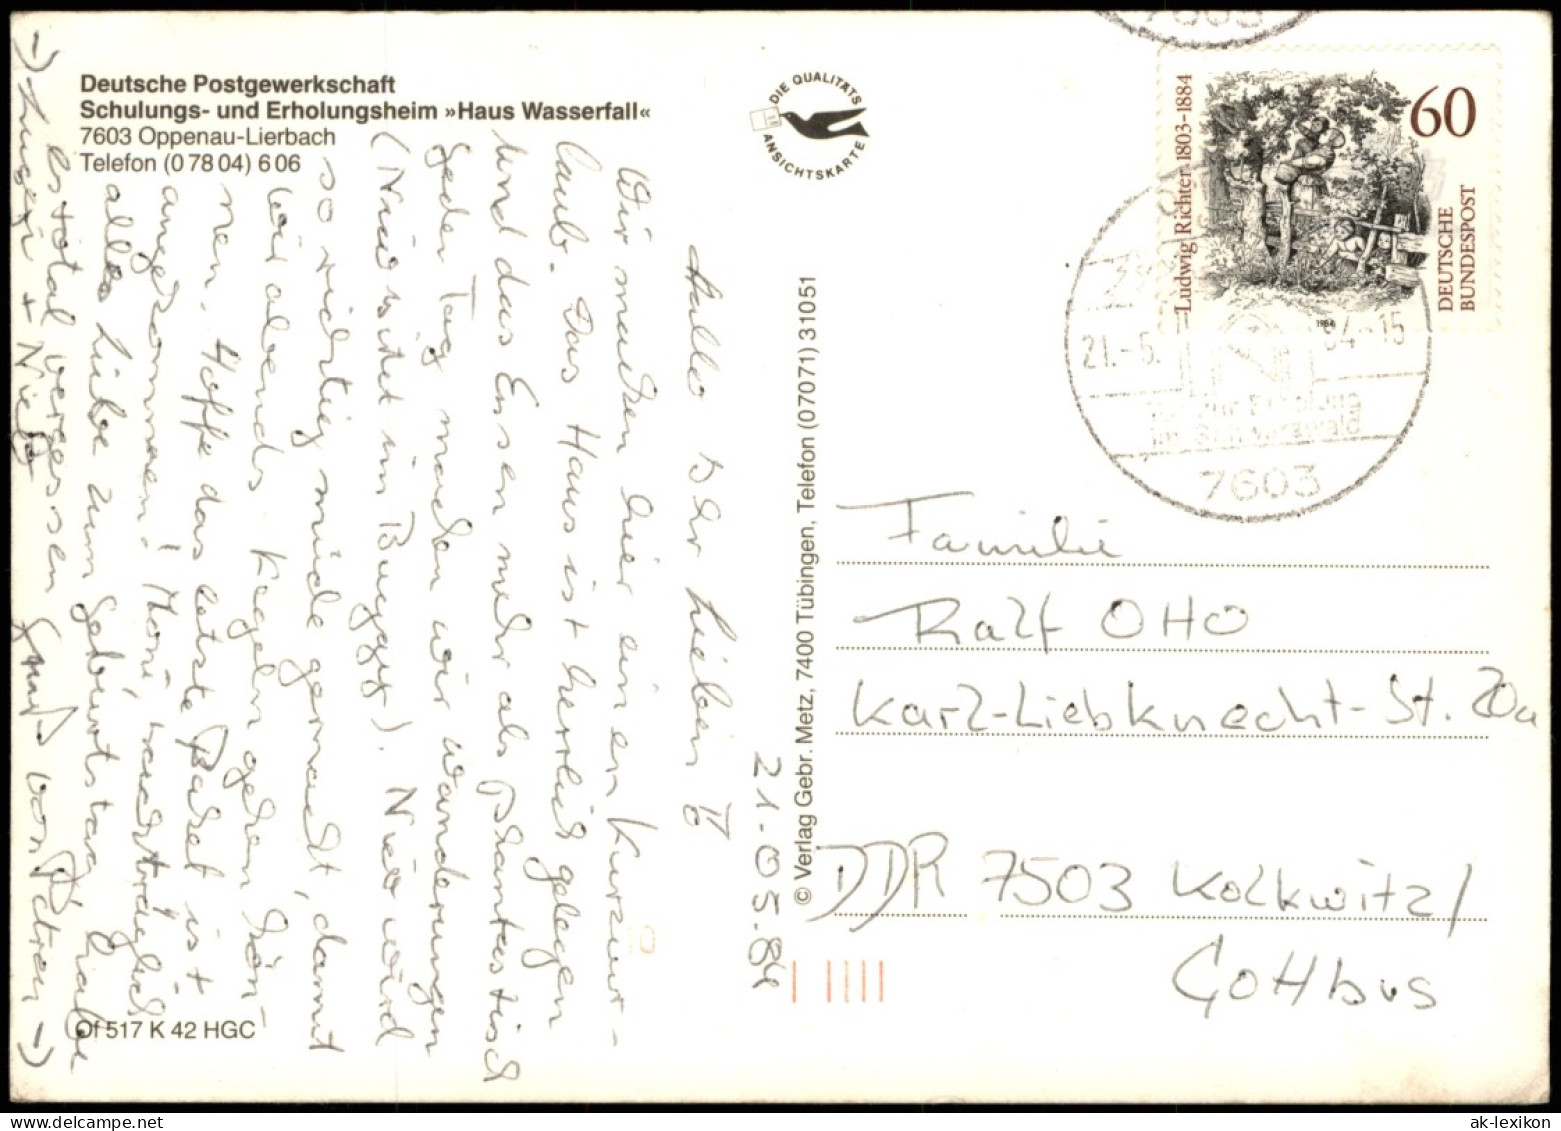 Deutsche Postgewerkschaft
Schulungs- und Erholungsheim »Haus Wasserfall«
7603 Oppenau-Lierbach
Telefon (0 78 04) 6 06
DIE QUALITÄTS
ANSICHTSKARTE
7603
Ludwig Richter 1803-1884
60
DEUTSCHE
BUNDESPOST
1984
21.-5. 84-15
zur Erholung
im Schwarzwald
7603
21.05.84
Hallo Ihr Lieben
Wir machen hier einen Kurzur-
laub. Das Haus ist herrlich gelegen
und das Essen mehr als phantastisch
Jeden Tag machen wir Wanderungen
(Nic sitzt im Buggy). Nic wird
so richtig müde gemacht, damit
wir abends Kegeln gehen kön-
nen. Hoffe das letzte Packet ist
angekommen! Moni, nachträglich
alles Liebe zum Geburtstag habe
es total vergessen Gruß von Petra
© Verlag Gebr. Metz, 7400 Tübingen, Telefon (07071) 31051
Familie
Ralf Otto
Karl-Liebknecht-St. 20a
DDR 7503 Kolkwitz/
Cottbus
Of 517 K 42 HGC
ak-lexikon